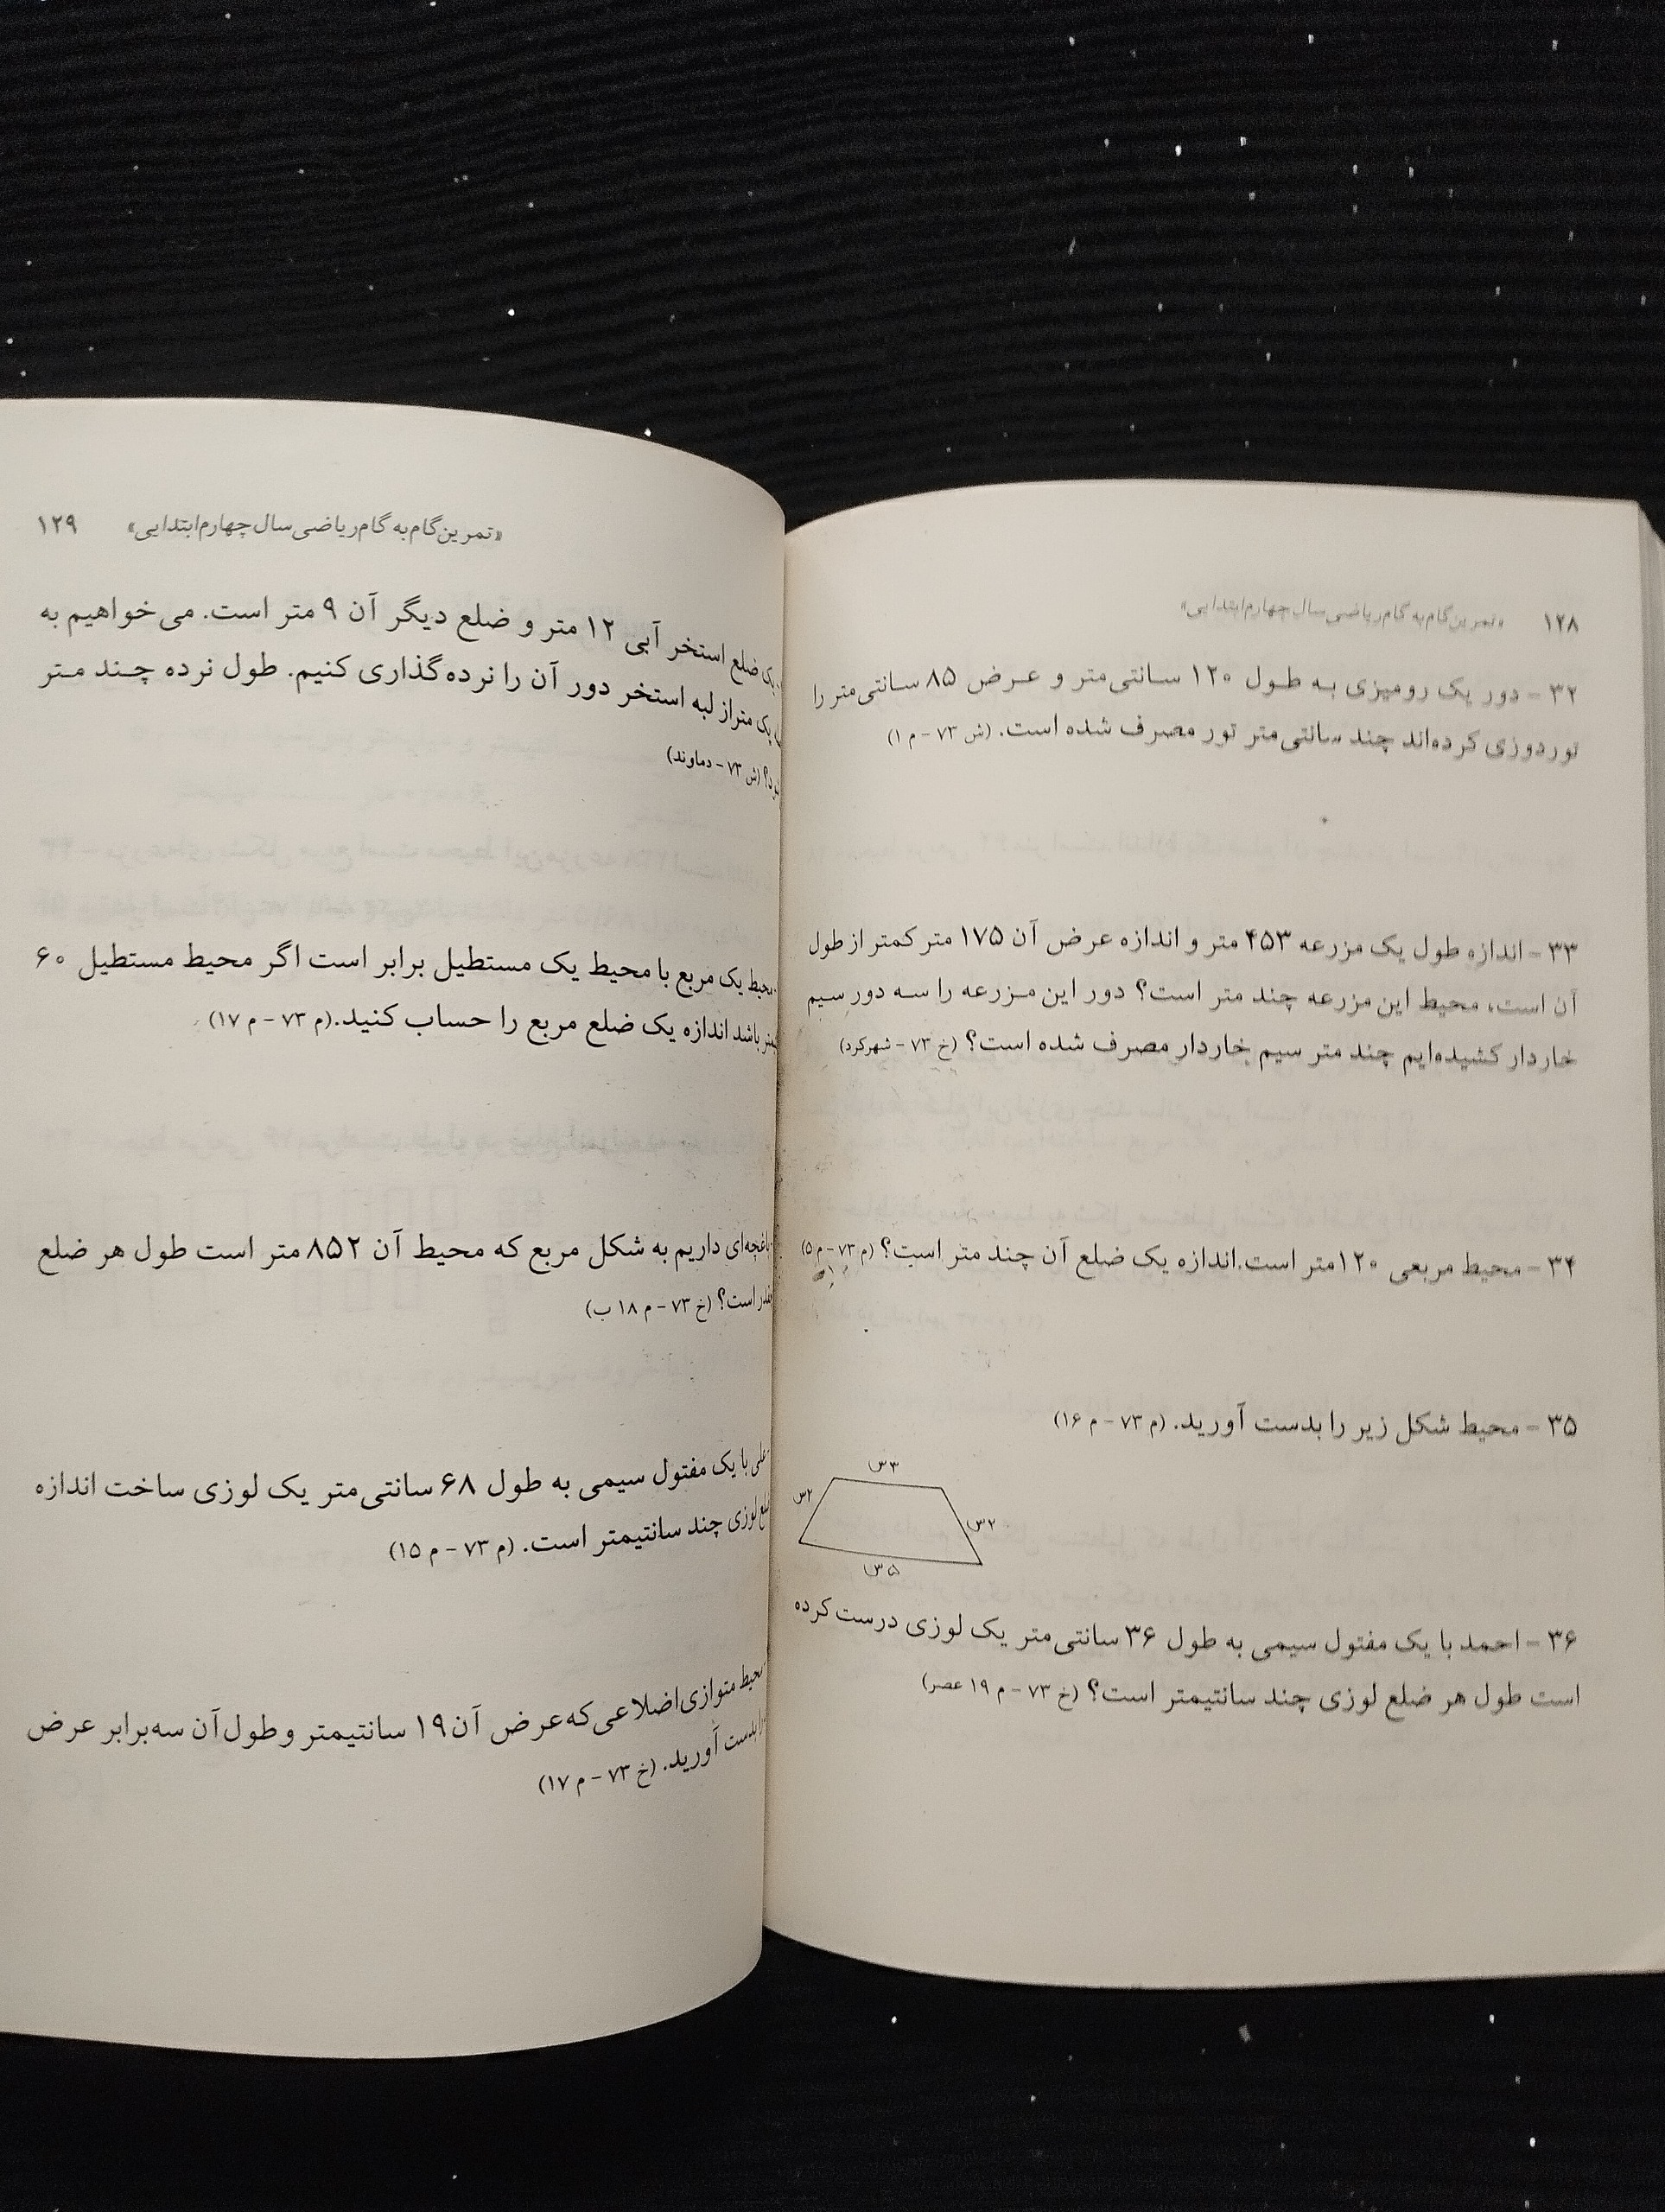 ۱۲۸ «تمرین گام به گام ریاضی سال چهارم ابتدایی»
۳۲ - دور یک رومیزی به طول ۱۲۰ سانتی‌متر و عرض ۸۵ سانتی‌متر را
توردوزی کرده‌اند چند سانتی‌متر تور مصرف شده است. (ش ۷۳ - م ۱)
۳۳ - اندازه طول یک مزرعه ۴۵۳ متر و اندازه عرض آن ۱۷۵ متر کمتر از طول
آن است، محیط این مزرعه چند متر است؟ دور این مزرعه را سه دور سیم
خاردار کشیده‌ایم چند متر سیم خاردار مصرف شده است؟ (خ ۷۳ - شهرکرد)
۳۴ - محیط مربعی ۱۲۰ متر است.اندازه یک ضلع آن چند متر است؟ (م ۷۳ - م ۵)
۳۵ - محیط شکل زیر را بدست آورید. (م ۷۳ - م ۱۶)
۳س
۲س
۲س
۵س
۳۶ - احمد با یک مفتول سیمی به طول ۳۶ سانتی‌متر یک لوزی درست کرده
است طول هر ضلع لوزی چند سانتیمتر است؟ (خ ۷۳ - م ۱۹ عصر)
«تمرین گام به گام ریاضی سال چهارم ابتدایی» ۱۲۹
یک ضلع استخر آبی ۱۲ متر و ضلع دیگر آن ۹ متر است. می‌خواهیم به
یک متر از لبه استخر دور آن را نرده‌گذاری کنیم. طول نرده چند متر
(ش ۷۳ - دماوند)
محیط یک مربع با محیط یک مستطیل برابر است اگر محیط مستطیل ۶۰
باشد اندازه یک ضلع مربع را حساب کنید.(م ۷۳ - م ۱۷)
باغچه‌ای داریم به شکل مربع که محیط آن ۸۵۲ متر است طول هر ضلع
است؟ (خ ۷۳ - م ۱۸ ب)
علی با یک مفتول سیمی به طول ۶۸ سانتی‌متر یک لوزی ساخت اندازه
لوزی چند سانتیمتر است. (م ۷۳ - م ۱۵)
محیط متوازی‌اضلاعی که عرض آن ۱۹ سانتیمتر و طول آن سه برابر عرض
بدست آورید. (خ ۷۳ - م ۱۷)